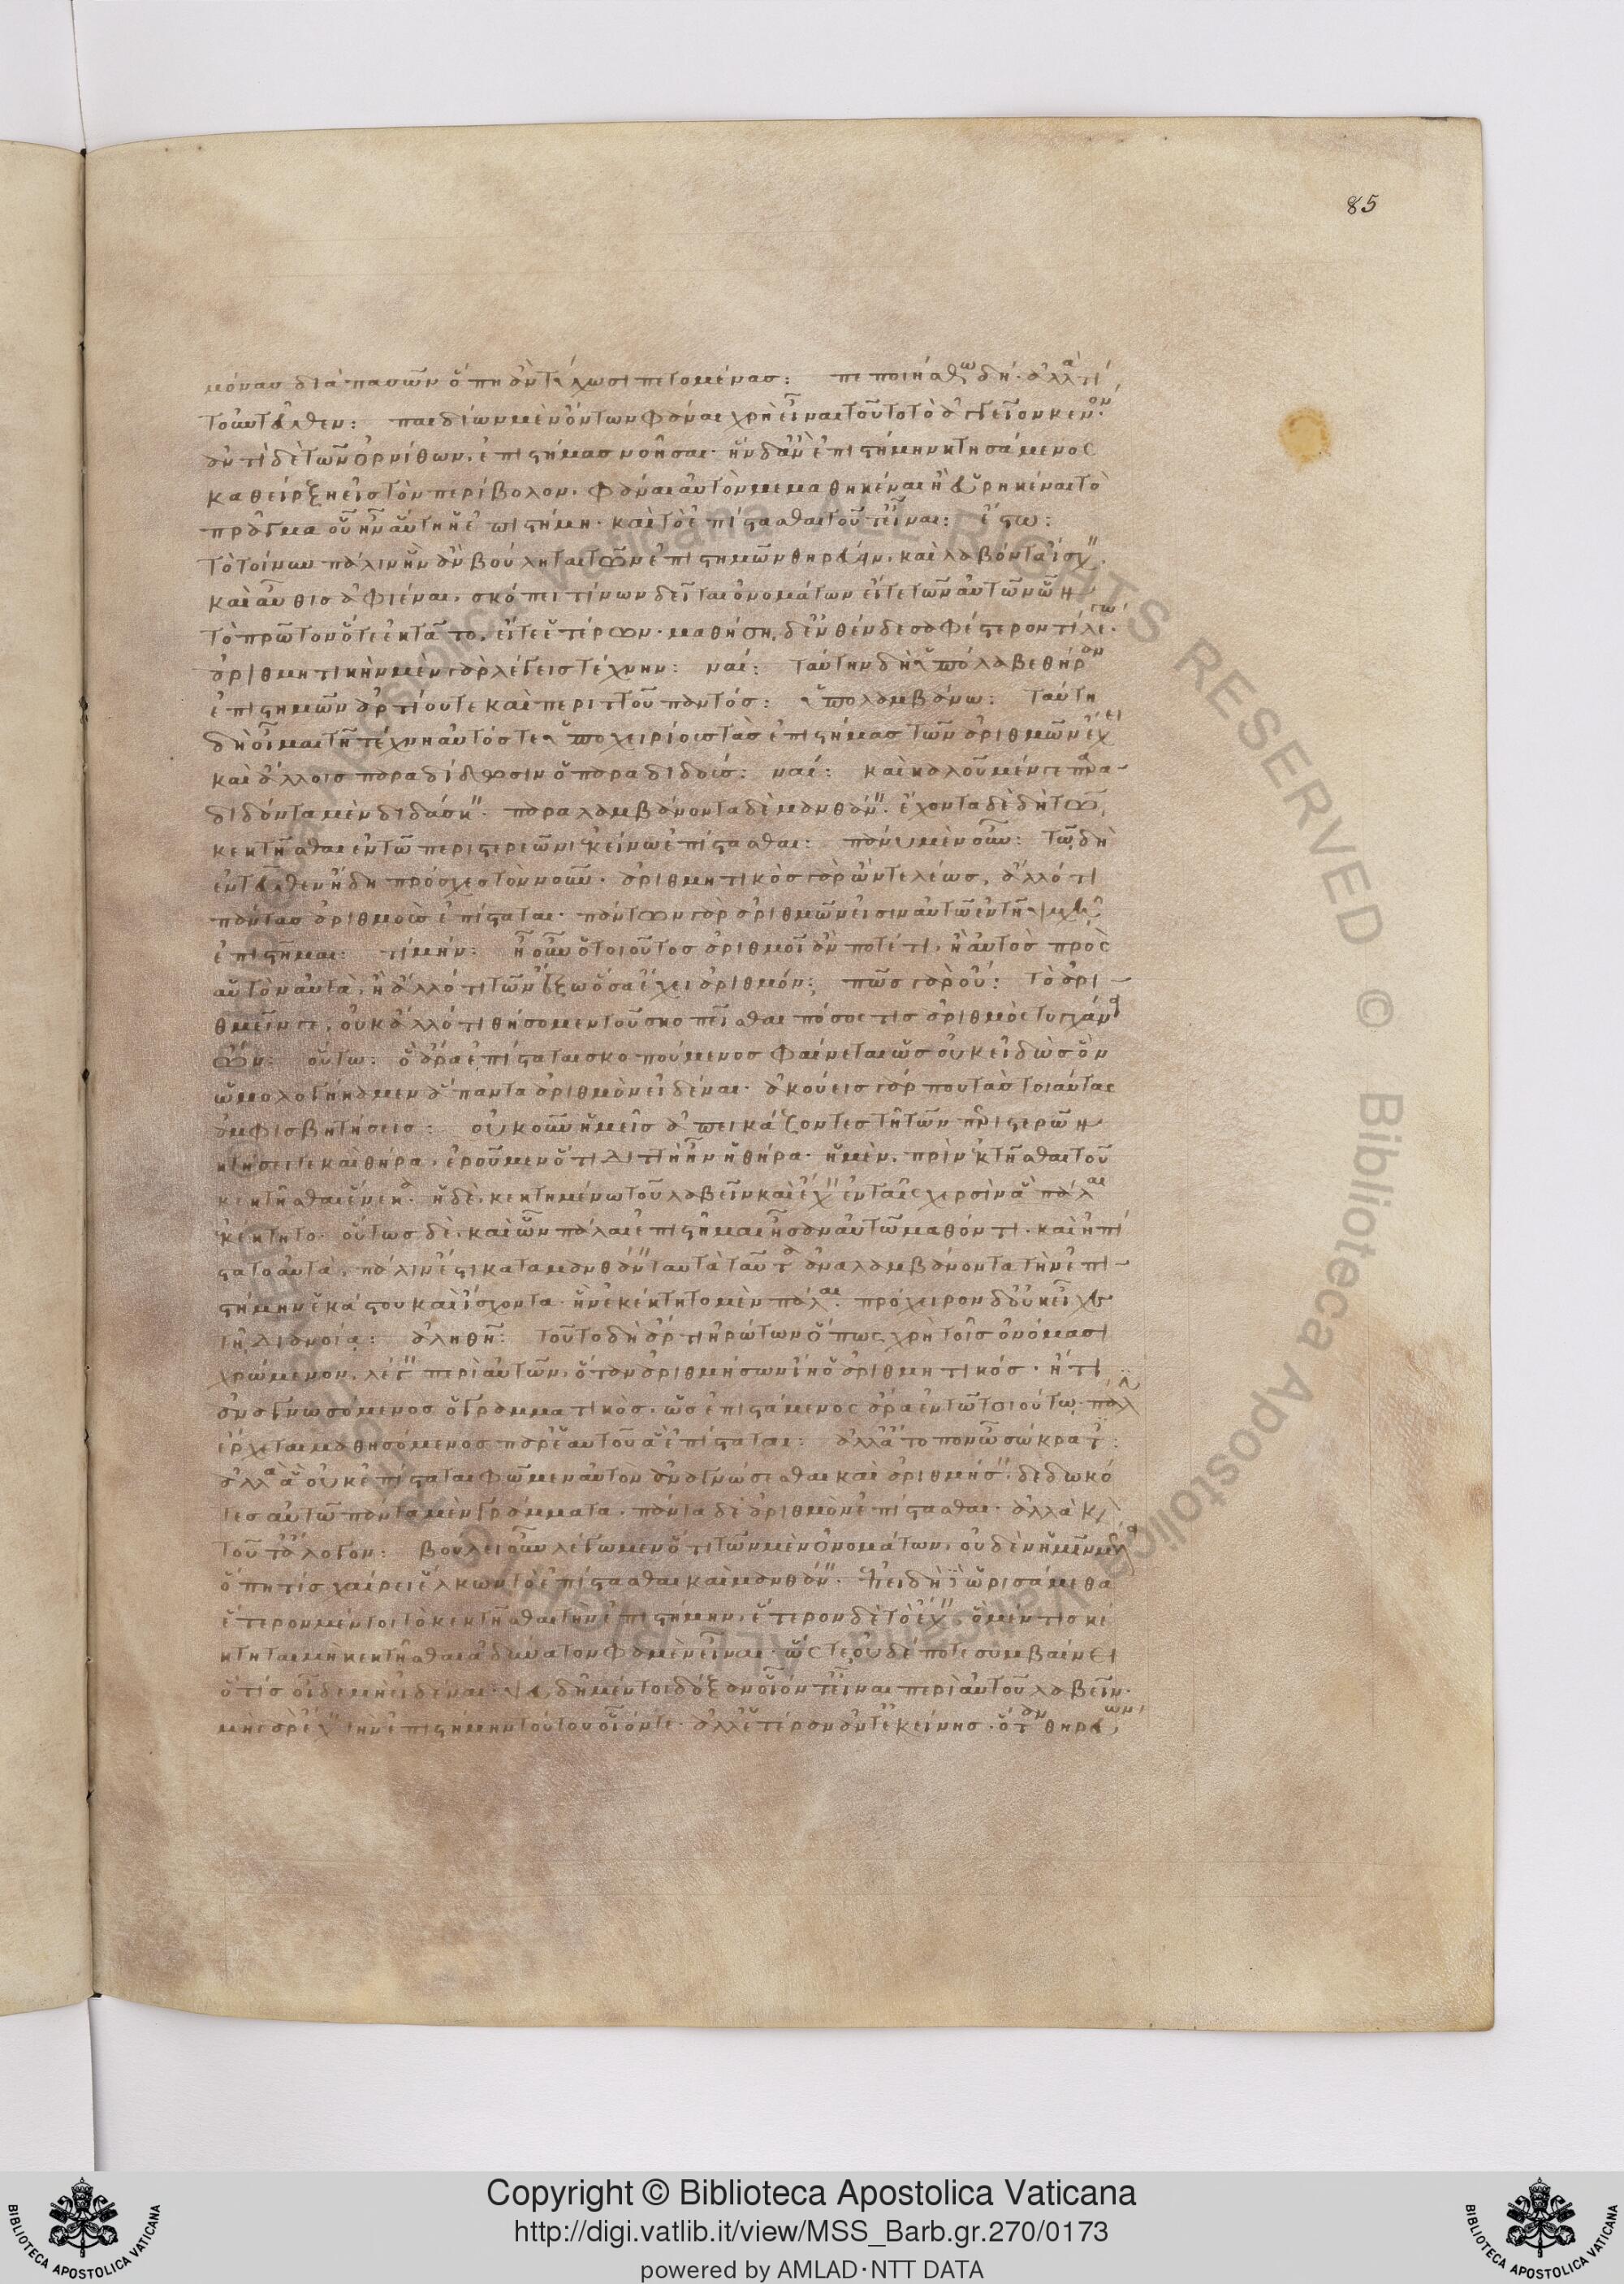 85
μόνας διὰ πασῶν ὅπη ἂν τύχωσι πετομένας: πεποιήσθω δή. ἀλλὰ τί
τοὐντεῦθεν: παιδίων μὲν ὄντων φάναι χρὴ εἶναι τοῦτο τὸ ἀγγεῖον κενόν.
ἀντὶ δὲ τῶν ὀρνίθων, ἐπιστήμας νοῆσαι. ἣν δ' ἂν ἐπιστήμην κτησάμενος
καθείρξῃ εἰς τὸν περίβολον, φάναι αὐτὸν μεμαθηκέναι ἢ εὑρηκέναι τὸ
πρᾶγμα οὗ ἦν αὕτη ἡ ἐπιστήμη. καὶ τὸ ἐπίστασθαι τοῦτ' εἶναι: ἔστω:
τὸ τοίνυν πάλιν ἣν ἂν βούληται τῶν ἐπιστημῶν θηρεύειν, καὶ λαβόντα ἴσχειν
καὶ αὖθις ἀφιέναι, σκόπει τίνων δεῖται ὀνομάτων εἴτε τῶν αὐτῶν ὧν
τὸ πρῶτον ὅτε ἐκτᾶτο, εἴτε ἑτέρων. μαθήσῃ δ' ἐνθένδε σαφέστερον τί λέγω.
ἀριθμητικὴν μὲν γὰρ λέγεις τέχνην: ναί: ταύτην δὴ ὑπόλαβε θήραν
ἐπιστημῶν ἀρτίου τε καὶ περιττοῦ παντός: ὑπολαμβάνω: ταύτη
δὴ οἶμαι τῆ τέχνη αὐτός τε ὑποχειρίους τὰς ἐπιστήμας τῶν ἀριθμῶν ἔχει
καὶ ἄλλοις παραδίδωσιν ὁ παραδιδούς: ναί: καὶ καλοῦμέν γε παρα-
διδόντα μὲν διδάσκειν. παραλαμβάνοντα δὲ μανθάνειν. ἔχοντα δὲ δὴ τῶ
κεκτῆσθαι ἐν τῶ περιστερεῶνι ἐκείνω ἐπίστασθαι: πάνυ μὲν οὖν: τῶ δὴ
ἐντεῦθεν ἤδη πρόσχες τὸν νοῦν. ἀριθμητικὸς γὰρ ὢν τελέως, ἄλλό τι
πάντας ἀριθμοὺς ἐπίσταται. πάντων γὰρ ἀριθμῶν εἰσιν αὐτῶ ἐν τῆ ψυχῆ
ἐπιστῆμαι: τί μήν: ἦ οὖν ὁ τοιοῦτος ἀριθμοῖ ἄν ποτέ τι, ἢ αὐτὸς πρὸς
αὑτὸν αὐτὰ, ἢ ἄλλό τι τῶν ἔξω ὅσα ἔχει ἀριθμόν: πῶς γὰρ οὔ: τὸ ἀρι-
θμεῖν γε, οὐκ ἄλλό τι θήσομεν τοῦ σκοπεῖσθαι πόσος τις ἀριθμὸς τυγχάνει
ὤν: οὕτω: ὃ ἄρα ἐπίσταται σκοπούμενος φαίνεται ὡς οὐκ εἰδὼς ὃν
ὡμολογήκαμεν ἅπαντα ἀριθμὸν εἰδέναι. ἀκούεις γάρ που τὰς τοιαύτας
ἀμφισβητήσεις: οὐκοῦν ἡμεῖς ἀπεικάζοντες τῆ τῶν περιστερῶν
κτήσει τε καὶ θήρα, ἐροῦμεν ὅτι διττὴ ἦν ἡ θήρα. ἡ μὲν, πρὶν ἐκτῆσθαι τοῦ
κεκτῆσθαι ἕνεκα. ἡ δὲ, κεκτημένω τοῦ λαβεῖν καὶ ἔχειν ἐν ταῖς χερσὶν ἃ πάλαι
ἐκέκτητο. οὕτως δὲ, καὶ ὧν πάλαι ἐπιστῆμαι ἦσαν αὐτῶ μαθόντι. καὶ ἠπί
στατο αὐτὰ, πάλιν ἔστι καταμανθάνειν ταυτὰ ταῦτα ἀναλαμβάνοντα τὴν ἐπι-
στήμην ἑκάστου καὶ ἴσχοντα. ἣν ἐκέκτητο μὲν πάλαι. πρόχειρον δ' οὐκ εἶχε
τῆ διανοία: ἀληθῆ: τοῦτο δὴ ἄρτι ἠρώτων ὅπως χρὴ τοῖς ὀνόμασι
χρώμενον, λέγειν περὶ αὐτῶν, ὅταν ἀριθμήσων ἴη ὁ ἀριθμητικός. ἤ τι
ἀναγνωσόμενος ὁ γραμματικὸς. ὡς ἐπιστάμενος ἄρα ἐν τῶ τοιούτω πάλιν
ἔρχεται μαθησόμενος παρ' ἑαυτοῦ ἃ ἐπίσταται: ἀλλ' ἄτοπον ὦ σώκρατες:
ἀλλ' ἃ οὐκ ἐπίσταται φῶμεν αὐτὸν ἀναγνώσεσθαι καὶ ἀριθμήσειν. δεδωκό
τες αὐτῶ πάντα μὲν γράμματα, πάντα δὲ ἀριθμὸν ἐπίστασθαι. ἀλλὰ καὶ
τοῦτ' ἄλογον: βούλει οὖν λέγωμεν ὅτι τῶν μὲν ὀνομάτων, οὐδὲν ἡμῖν μέλει
ὅπη τίς χαίρει ἕλκων τὸ ἐπίστασθαι καὶ μανθάνειν. ἐπειδὴ ὡρισάμεθα
ἕτερον μέν τοι τὸ κεκτῆσθαι τὴν ἐπιστήμην, ἕτερον δὲ τὸ ἔχειν, ὃ μέν τις κέ
κτηται μὴ κεκτῆσθαι ἀδύνατον φαμὲν εἶναι. ὥστε οὐδέποτε συμβαίνει
ὅ τις οἶδε μὴ εἰδέναι. ψευδῆ μέντοι δόξαν οἷόν τ' εἶναι περὶ αὐτοῦ λαβεῖν.
μὴ γὰρ ἔχειν τὴν ἐπιστήμην τούτου οἷόν τε. ἀλλ' ἑτέραν ἀντ' ἐκείνης. ὅταν θηρεύων
Copyright © Biblioteca Apostolica Vaticana
http://digi.vatlib.it/view/MSS_Barb.gr.270/0173
powered by AMLAD·NTT DATA